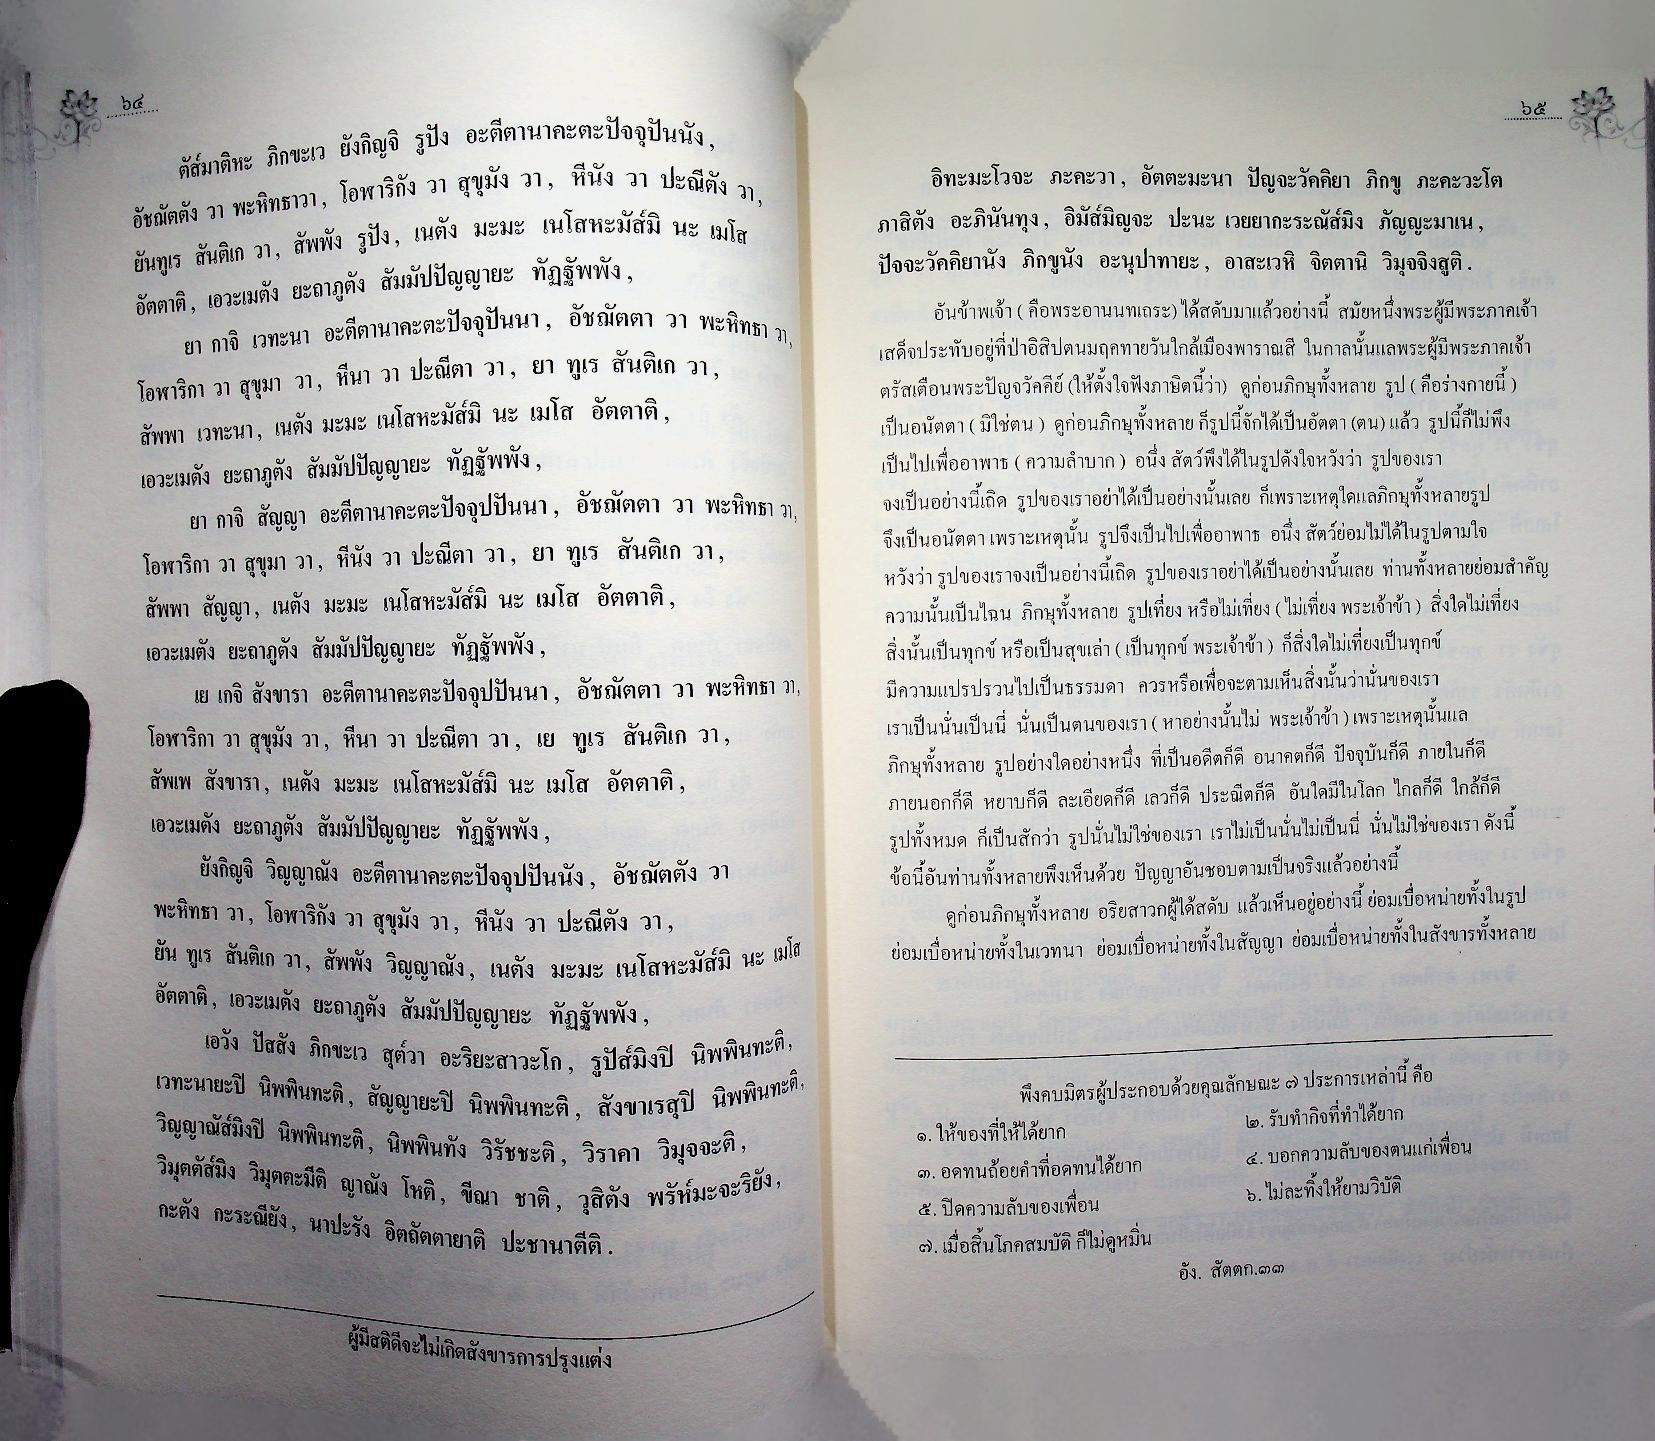 ๖๔
ตัส๎มาติหะ ภิกขะเว ยังกิญจิ รูปัง อะตีตานาคะตะปัจจุปันนัง,
อัชฌัตตัง วา พะหิทธาวา, โอฬาริกัง วา สุขุมัง วา, หีนัง วา ปะณีตัง วา,
ยันทูเร สันติเก วา, สัพพัง รูปัง, เนตัง มะมะ เนโสหะมัส๎มิ นะ เมโส
อัตตาติ, เอวะเมตัง ยะถาภูตัง สัมมัปปัญญายะ ทัฏฐัพพัง,
ยา กาจิ เวทะนา อะตีตานาคะตะปัจจุปันนา, อัชฌัตตา วา พะหิทธา วา,
โอฬาริกา วา สุขุมา วา, หีนา วา ปะณีตา วา, ยา ทูเร สันติเก วา,
สัพพา เวทะนา, เนตัง มะมะ เนโสหะมัส๎มิ นะ เมโส อัตตาติ,
เอวะเมตัง ยะถาภูตัง สัมมัปปัญญายะ ทัฏฐัพพัง,
ยา กาจิ สัญญา อะตีตานาคะตะปัจจุปปันนา, อัชฌัตตา วา พะหิทธา วา,
โอฬาริกา วา สุขุมา วา, หีนัง วา ปะณีตา วา, ยา ทูเร สันติเก วา,
สัพพา สัญญา, เนตัง มะมะ เนโสหะมัส๎มิ นะ เมโส อัตตาติ,
เอวะเมตัง ยะถาภูตัง สัมมัปปัญญายะ ทัฏฐัพพัง,
เย เกจิ สังขารา อะตีตานาคะตะปัจจุปปันนา, อัชฌัตตา วา พะหิทธา วา,
โอฬาริกา วา สุขุมัง วา, หีนา วา ปะณีตา วา, เย ทูเร สันติเก วา,
สัพเพ สังขารา, เนตัง มะมะ เนโสหะมัส๎มิ นะ เมโส อัตตาติ,
เอวะเมตัง ยะถาภูตัง สัมมัปปัญญายะ ทัฏฐัพพัง,
ยังกิญจิ วิญญาณัง อะตีตานาคะตะปัจจุปปันนัง, อัชฌัตตัง วา
พะหิทธา วา, โอฬาริกัง วา สุขุมัง วา, หีนัง วา ปะณีตัง วา,
ยัน ทูเร สันติเก วา, สัพพัง วิญญาณัง, เนตัง มะมะ เนโสหะมัส๎มิ นะ เมโส
อัตตาติ, เอวะเมตัง ยะถาภูตัง สัมมัปปัญญายะ ทัฏฐัพพัง,
เอวัง ปัสสัง ภิกขะเว สุต๎วา อะริยะสาวะโก, รูปัส๎มิงปิ นิพพินทะติ,
เวทะนายะปิ นิพพินทะติ, สัญญายะปิ นิพพินทะติ, สังขาเรสุปิ นิพพินทะติ,
วิญญาณัส๎มิงปิ นิพพินทะติ, นิพพินทัง วิรัชชะติ, วิราคา วิมุจจะติ,
วิมุตตัส๎มิง วิมุตตะมีติ ญาณัง โหติ, ขีณา ชาติ, วุสิตัง พรัห๎มะจะริยัง,
กะตัง กะระณียัง, นาปะรัง อิตถัตตายาติ ปะชานาตีติ.
ผู้มีสติดีจะไม่เกิดสังขารการปรุงแต่ง
๖๕
อิทะมะโวจะ ภะคะวา, อัตตะมะนา ปัญจะวัคคิยา ภิกขู ภะคะวะโต
ภาสิตัง อะภินันทุง, อิมัส๎มิญจะ ปะนะ เวยยากะระณัส๎มิง ภัญญะมาเน,
ปัจจะวัคคิยานัง ภิกขูนัง อะนุปาทายะ, อาสะเวหิ จิตตานิ วิมุจจิงสูติ.
อันข้าพเจ้า ( คือพระอานนทเถระ) ได้สดับมาแล้วอย่างนี้ สมัยหนึ่งพระผู้มีพระภาคเจ้า
เสด็จประทับอยู่ที่ป่าอิสิปตนมฤคทายวันใกล้เมืองพาราณสี ในกาลนั้นแลพระผู้มีพระภาคเจ้า
ตรัสเตือนพระปัญจวัคคีย์ (ให้ตั้งใจฟังภาษิตนี้ว่า) ดูก่อนภิกษุทั้งหลาย รูป ( คือร่างกายนี้ )
เป็นอนัตตา ( มิใช่ตน ) ดูก่อนภิกษุทั้งหลาย ก็รูปนี้จักได้เป็นอัตตา (ตน) แล้ว รูปนี้ก็ไม่พึง
เป็นไปเพื่ออาพาธ ( ความลำบาก ) อนึ่ง สัตว์พึงได้ในรูปดังใจหวังว่า รูปของเรา
จงเป็นอย่างนี้เถิด รูปของเราอย่าได้เป็นอย่างนั้นเลย ก็เพราะเหตุใดแลภิกษุทั้งหลายรูป
จึงเป็นอนัตตา เพราะเหตุนั้น รูปจึงเป็นไปเพื่ออาพาธ อนึ่ง สัตว์ย่อมไม่ได้ในรูปตามใจ
หวังว่า รูปของเราจงเป็นอย่างนี้เถิด รูปของเราอย่าได้เป็นอย่างนั้นเลย ท่านทั้งหลายย่อมสำคัญ
ความนั้นเป็นไฉน ภิกษุทั้งหลาย รูปเที่ยง หรือไม่เที่ยง ( ไม่เที่ยง พระเจ้าข้า ) สิ่งใดไม่เที่ยง
สิ่งนั้นเป็นทุกข์ หรือเป็นสุขเล่า ( เป็นทุกข์ พระเจ้าข้า ) ก็สิ่งใดไม่เที่ยงเป็นทุกข์
มีความแปรปรวนไปเป็นธรรมดา ควรหรือเพื่อจะตามเห็นสิ่งนั้นว่านั่นของเรา
เราเป็นนั่นเป็นนี่ นั่นเป็นตนของเรา ( หาอย่างนั้นไม่ พระเจ้าข้า ) เพราะเหตุนั้นแล
ภิกษุทั้งหลาย รูปอย่างใดอย่างหนึ่ง ที่เป็นอดีตก็ดี อนาคตก็ดี ปัจจุบันก็ดี ภายในก็ดี
ภายนอกก็ดี หยาบก็ดี ละเอียดก็ดี เลวก็ดี ประณีตก็ดี อันใดมีในโลก ไกลก็ดี ใกล้ก็ดี
รูปทั้งหมด ก็เป็นสักว่า รูปนั่นไม่ใช่ของเรา เราไม่เป็นนั่นไม่เป็นนี่ นั่นไม่ใช่ของเรา ดังนี้
ข้อนี้อันท่านทั้งหลายพึงเห็นด้วย ปัญญาอันชอบตามเป็นจริงแล้วอย่างนี้
ดูก่อนภิกษุทั้งหลาย อริยสาวกผู้ได้สดับ แล้วเห็นอยู่อย่างนี้ ย่อมเบื่อหน่ายทั้งในรูป
ย่อมเบื่อหน่ายทั้งในเวทนา ย่อมเบื่อหน่ายทั้งในสัญญา ย่อมเบื่อหน่ายทั้งในสังขารทั้งหลาย
พึงคบมิตรผู้ประกอบด้วยคุณลักษณะ ๗ ประการเหล่านี้ คือ
๑. ให้ของที่ให้ได้ยาก ๒. รับทำกิจที่ทำได้ยาก
๓. อดทนถ้อยคำที่อดทนได้ยาก ๔. บอกความลับของตนแก่เพื่อน
๕. ปิดความลับของเพื่อน ๖. ไม่ละทิ้งให้ยามวิบัติ
๗. เมื่อสิ้นโภคสมบัติ ก็ไม่ดูหมิ่น
อัง. สัตตก.๓๓